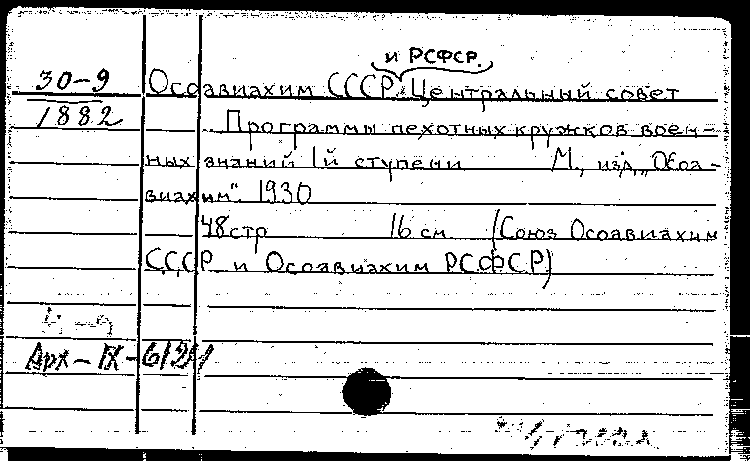 и РСФСР.
30-9 Осоавиахим СССР. Центральный совет
1882 Программы пехотных кружков воен-
ных знаний 1й ступени М., изд. „Осоа-
виахим". 1930
48 стр 16 см (Союз Осоавиахим
СССР и Осоавиахим РСФСР)
Арх-IX-